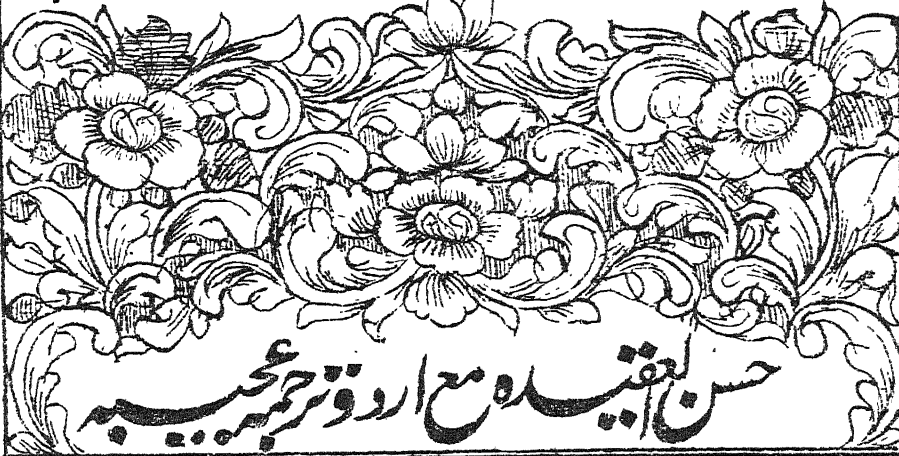 حسن العقیدہ مع اردو ترجمہ عجیبہ